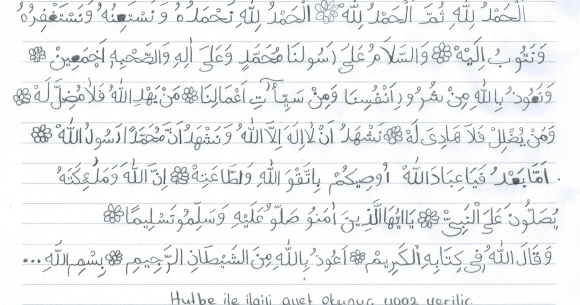 اَلْحَمْدُ لِلّٰهِ ثُمَّ الْحَمْدُ لِلّٰهِ ❁ اَلْحَمْدُ لِلّٰهِ نَحْمَدُهُ وَنَسْتَعِينُهُ وَنَسْتَغْفِرُهُ
وَنَتُوبُ اِلَيْهِ ❁ وَالسَّلَامُ عَلَى رَسُولِنَا مُحَمَّدٍ وَعَلَى اٰلِهِ وَالصَّحْبِهِ اَجْمَعِينَ ❁
وَنَعُوذُ بِاللّٰهِ مِنْ شُرُورِ اَنْفُسِنَا وَمِنْ سَيِّاٰتِ اَعْمَالِنَا ❁ مَنْ يَهْدِ اللّٰهُ فَلَا مُضِلَّ لَهُ ❁
وَمَنْ يُضْلِلْ فَلَا هَادِىَ لَهُ ❁ نَشْهَدُ اَنْ لَا اِلٰهَ اِلَّا اللّٰهُ وَنَشْهَدُ اَنَّ مُحَمَّدًا رَسُولُ اللّٰهُ ❁
اَمَّا بَعْدُ فَيَا عِبَادَ اللّٰهُ اُوصِيكُمْ بِاتَّقْوَ اللّٰهِ وَاطَاعَتِهِ ❁ اِنَّ اللّٰهَ وَمَلٰئِكَتَهُ
يُصَلُّونَ عَلَى النَّبِىِّ ❁ يَا اَيُّهَا الَّذِينَ اٰمَنُو صَلُّو عَلَيْهِ وَسَلِّمُو تَسْلِيمًا ❁
وَقَالَ اللّٰهُ فِى كِتَابِهِ الْكَرِيمِ ❁ اَعُوذُ بِاللّٰهِ مِنَ الشَّيْطَانِ الرَّجِيمِ ❁ بِسْمِ اللّٰهِ ...
Hutbe ile ilgili ayet okunur vaaz verilir